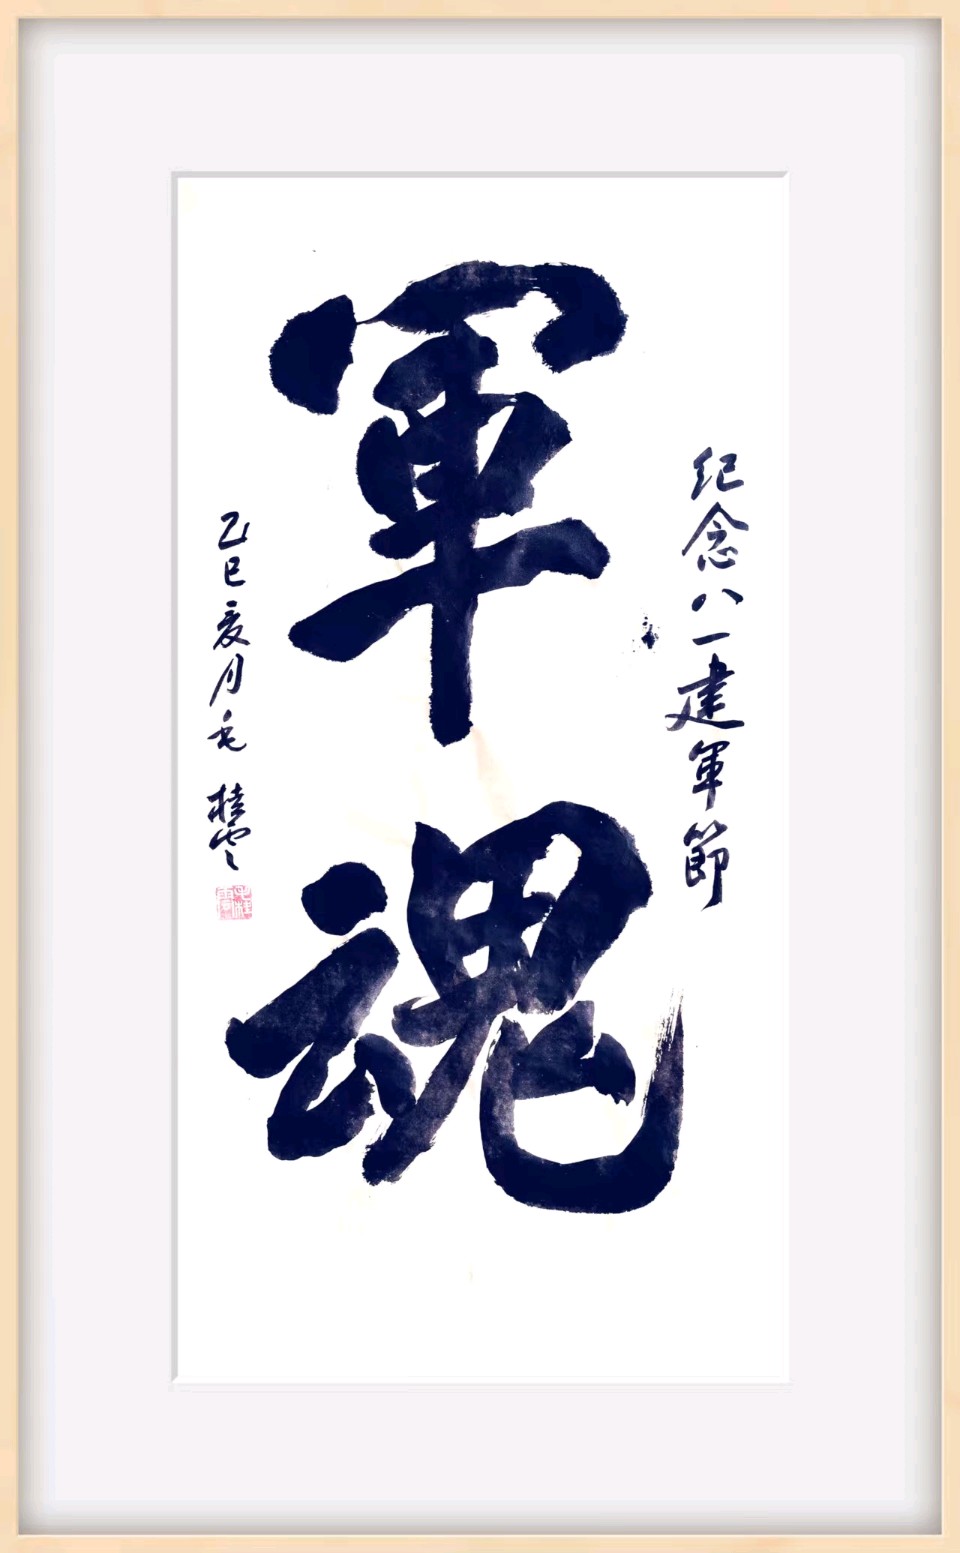 纪念八一建軍節
軍魂
乙巳夏月毛桂雲